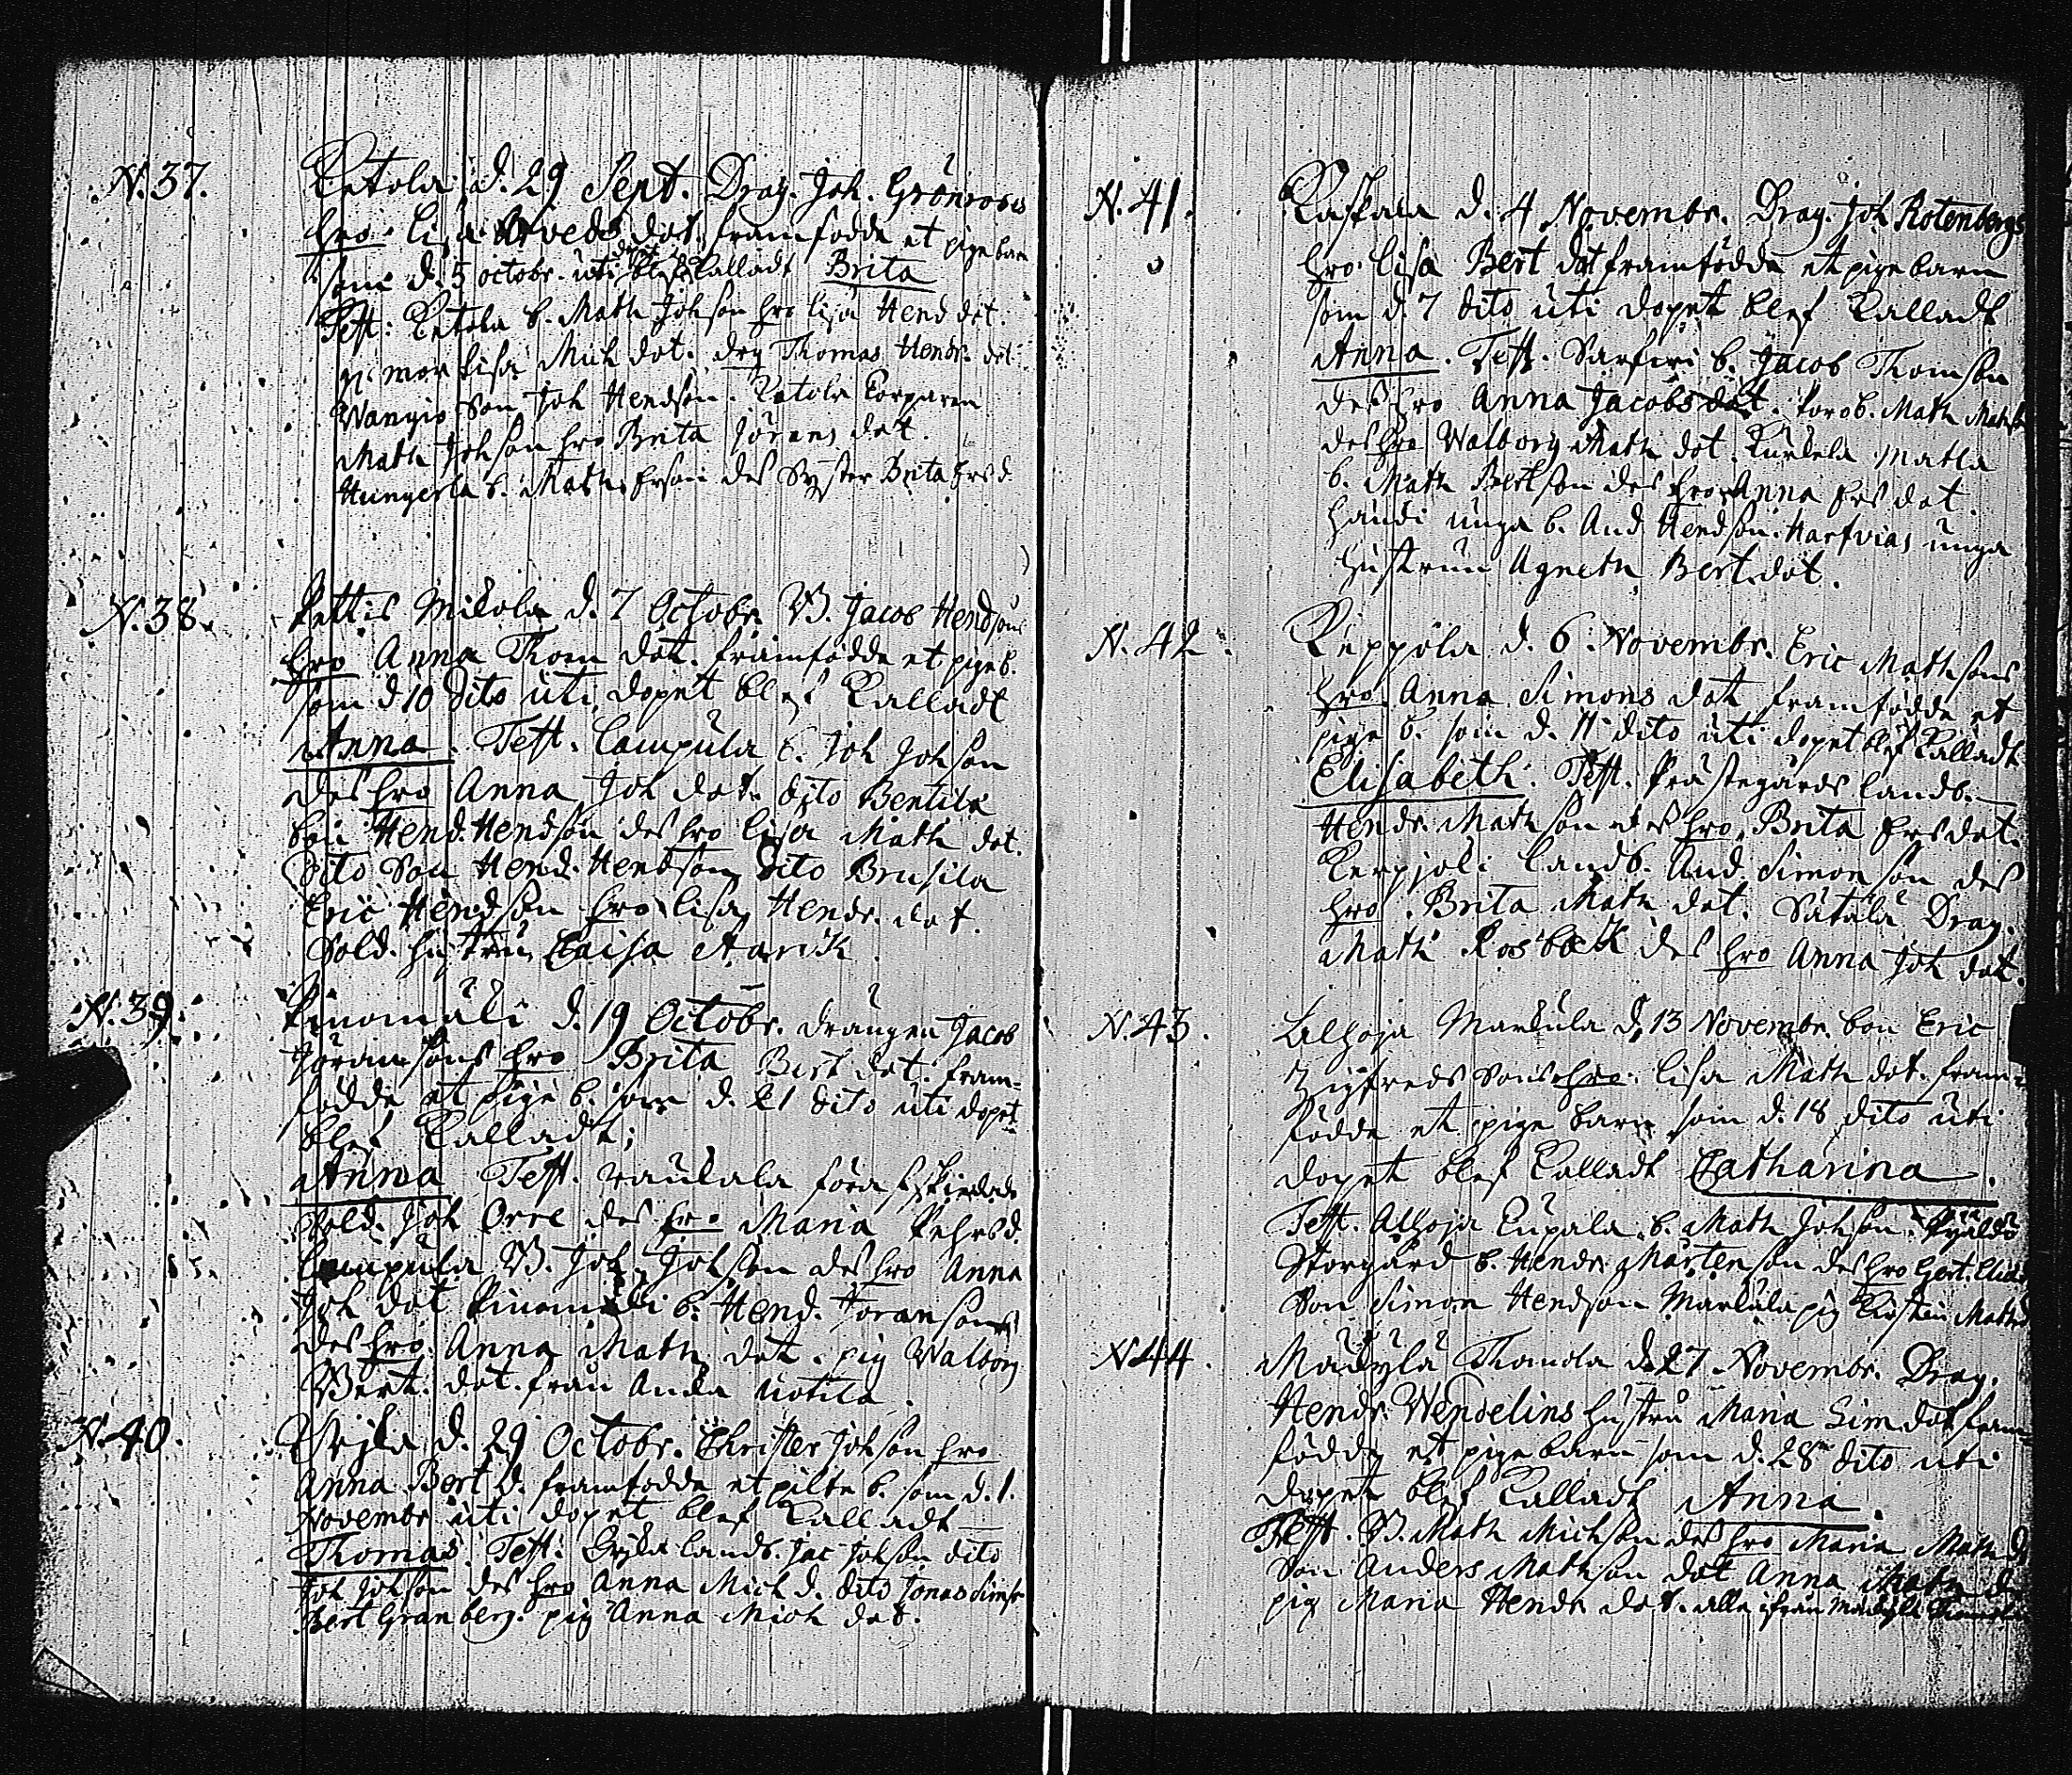 N. 37. Ketola d. 29 Sept. Drag. Joh. Grönroos
hro Lisa Arveds dot. framfödde et pige barn
som d. 5 octobr. uti dopet blef kalladt Brita
Test: Ketola b. Math Johson hro Lisa Hend dot.
mor Lisa Mich dot. drg Thomas Hendr.
Wangio Son Joh Hendson. Ketola torparen
Math Johson hro Brita Jörans dot.
Hungerla b. Math. Erson des Syster Brita Ers d.
N. 38. Pettis Mikola d. 7 Octobr. B. Jacob Hendsons
hro Anna Thom dot. framfödde et pige b.
som d 10 dito uti dopet blef kalladt
Anna. Test. Caupula b. Joh Johson
des hro Anna Joh dot. dito Bentila
bon Hend. Hendson des hro Lisa Math dot.
dito Son Hend. Hendson dito Brusila
Eric Hendson hro Lisa Hendr. dot.
Sold. hustru Caisa Starck.
N. 39. Pinomäki d. 19 Octobr. drängen Jacob
Jöransons hro Brita Bert dot. fram-
födde et pige b. som d. 21 dito uti dopet
blef kalladt;
Anna Test. Raukala förafskiedade
Sold. Joh Orre des hro Maria Pehrs d.
Caupula B. Joh. Johson des hro Anna
Joh dot Pinomäki b. Hend. Joransons
des hro Anna Math dot. pig Walborg
Bert. dot. från Anka Uotila.
N. 40. d. 29 Octobr. Christer Johson hro
Anna Bert d. framfödde et pilte b. som d. 1.
Novembr uti dopet blef kalladt
Thomas. Test: landb. Jac Johson dito
Joh Johson des hro Anna Mich d. dito Jonas Simson
Bert Granberg. pig Anna Mich dot.
N. 41. Kaskala d. 4 Novembr. Drag. Joh Rotenbergs
hro Lisa Bert dot framfödde et pige barn
som d. 7 dito uti dopet blef kalladt
Anna. Test. Särfwi b. Jacob Thomson
des hro Anna Jacobs dot. b. Math Mathson
des hro Walborg Math dot. Kurkela Matla
b. Math Bertson des hro Anna Ers dot.
Haudi unga b. And Hendson. Harfvias unga
hustrun Agneta Bert dot.
N. 42. Keppola d. 6 Novembr. Eric Mathsons
hro Anna Simons dot framfödde et
pige b. som d. 11 dito uti dopet blef kalladt
Elisabeth. Test. Prästegårds landb.
Hendr. Mathson des hro Brita Ers dot.
Kerpjoki landb. And. Simonson des
hro. Brita Math dot. Sätälä Drag.
Math Rosbäck des hro Anna Joh dot.
N. 43. Alhoja Markula d. 13 Novembr. bon Eric
Zigfreds sons hro. Lisa Math dot. fram-
födde et pige barn som d. 18 dito uti
dopet blef kalladt Catharina.
Test. Alhoja Eupala b. Math Johson.
Storgård b. Hendr. Mårtenson des hro Gert.
Son Simon Hendson Markula pig Kirstin Maths d
N. 44. Mäukylä Thanola d. 27 Novembr. Drag.
Hendr. Wendelins hustru Maria Sim dot fram-
födde et pige barn som d. 28 dito uti
dopet blef kalladt Anna.
Test. B. Math Michson des hro Maria Math d
Son Anders Mathson dot Anna Math d
pig Maria Hendr dot. alla ifrån Mäukylä Thanola